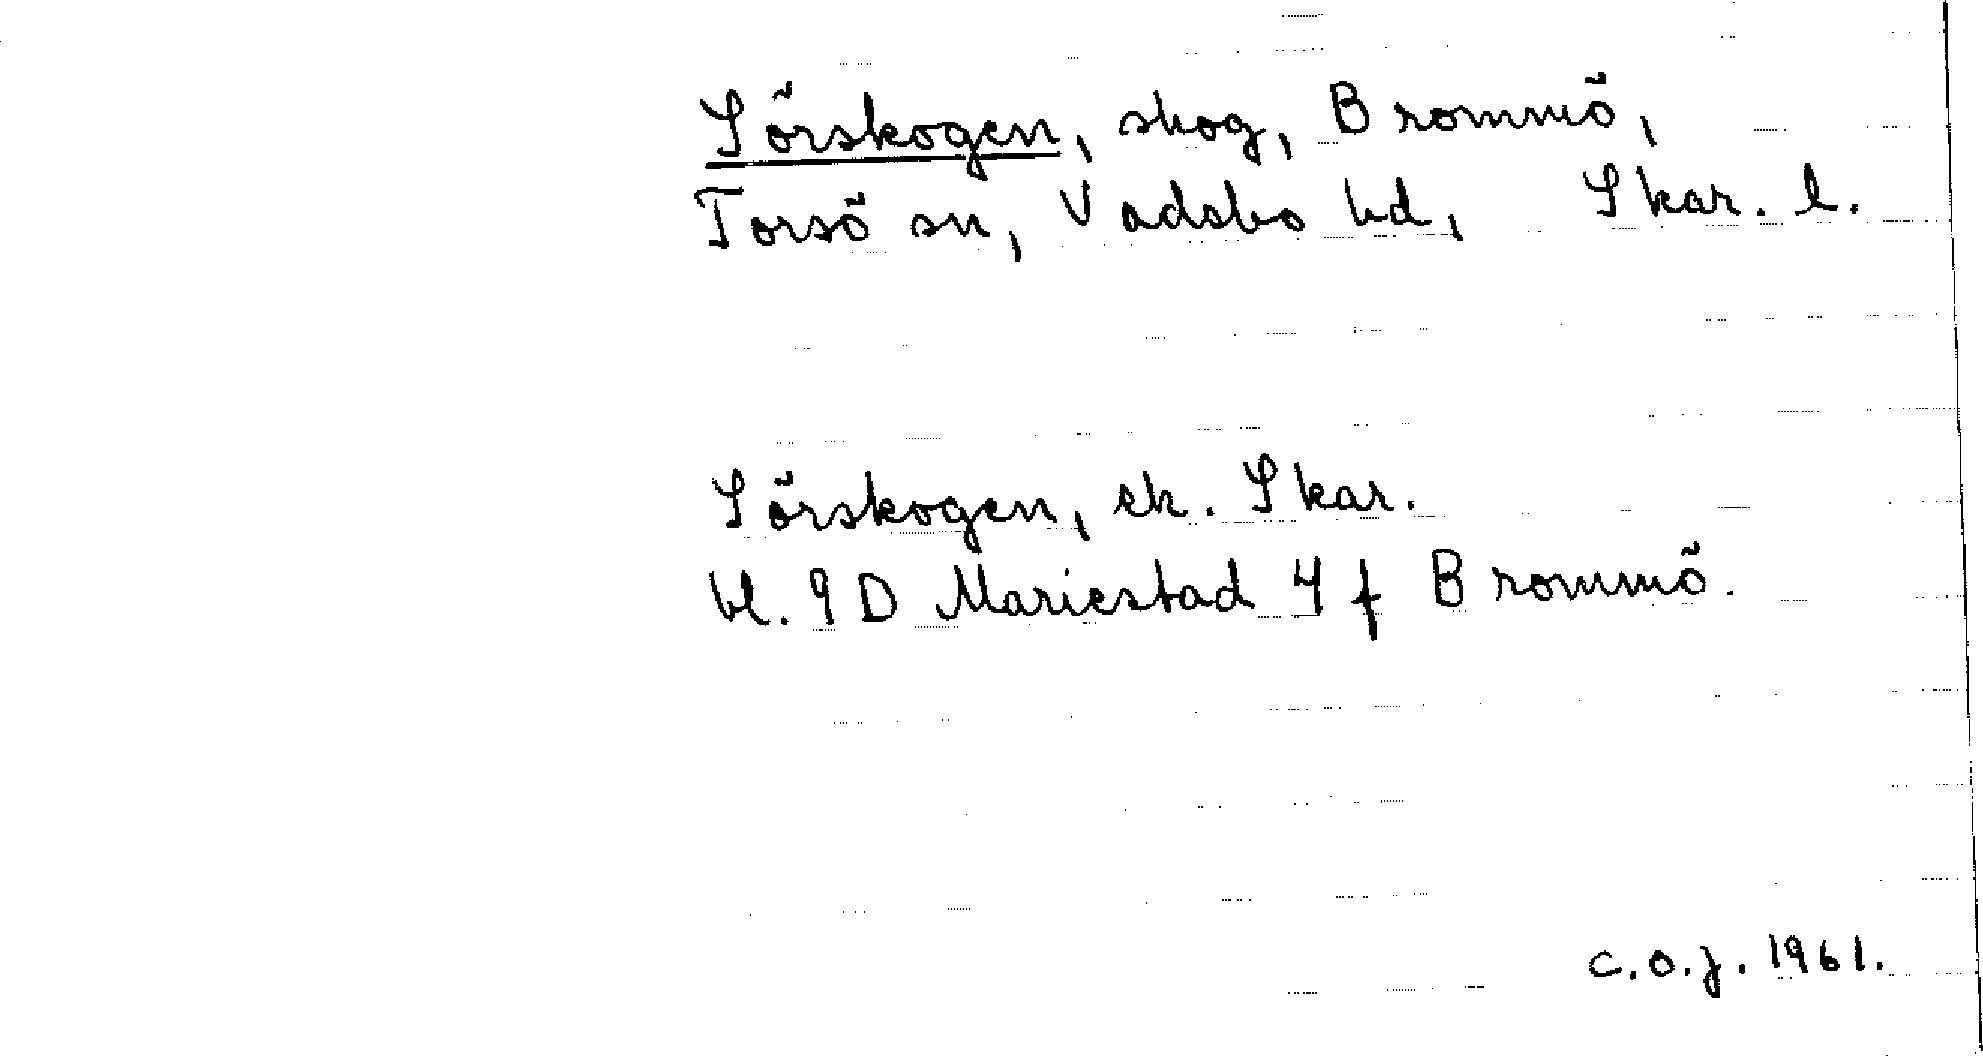 Sörskogen, skog, Brommö,
Torsö sn, Vadsbo hd, Skar. l.
Sörskogen, ek. Skar.
bl. 9 D Mariestad 4 f Brommö.
C.O.J. 1961.